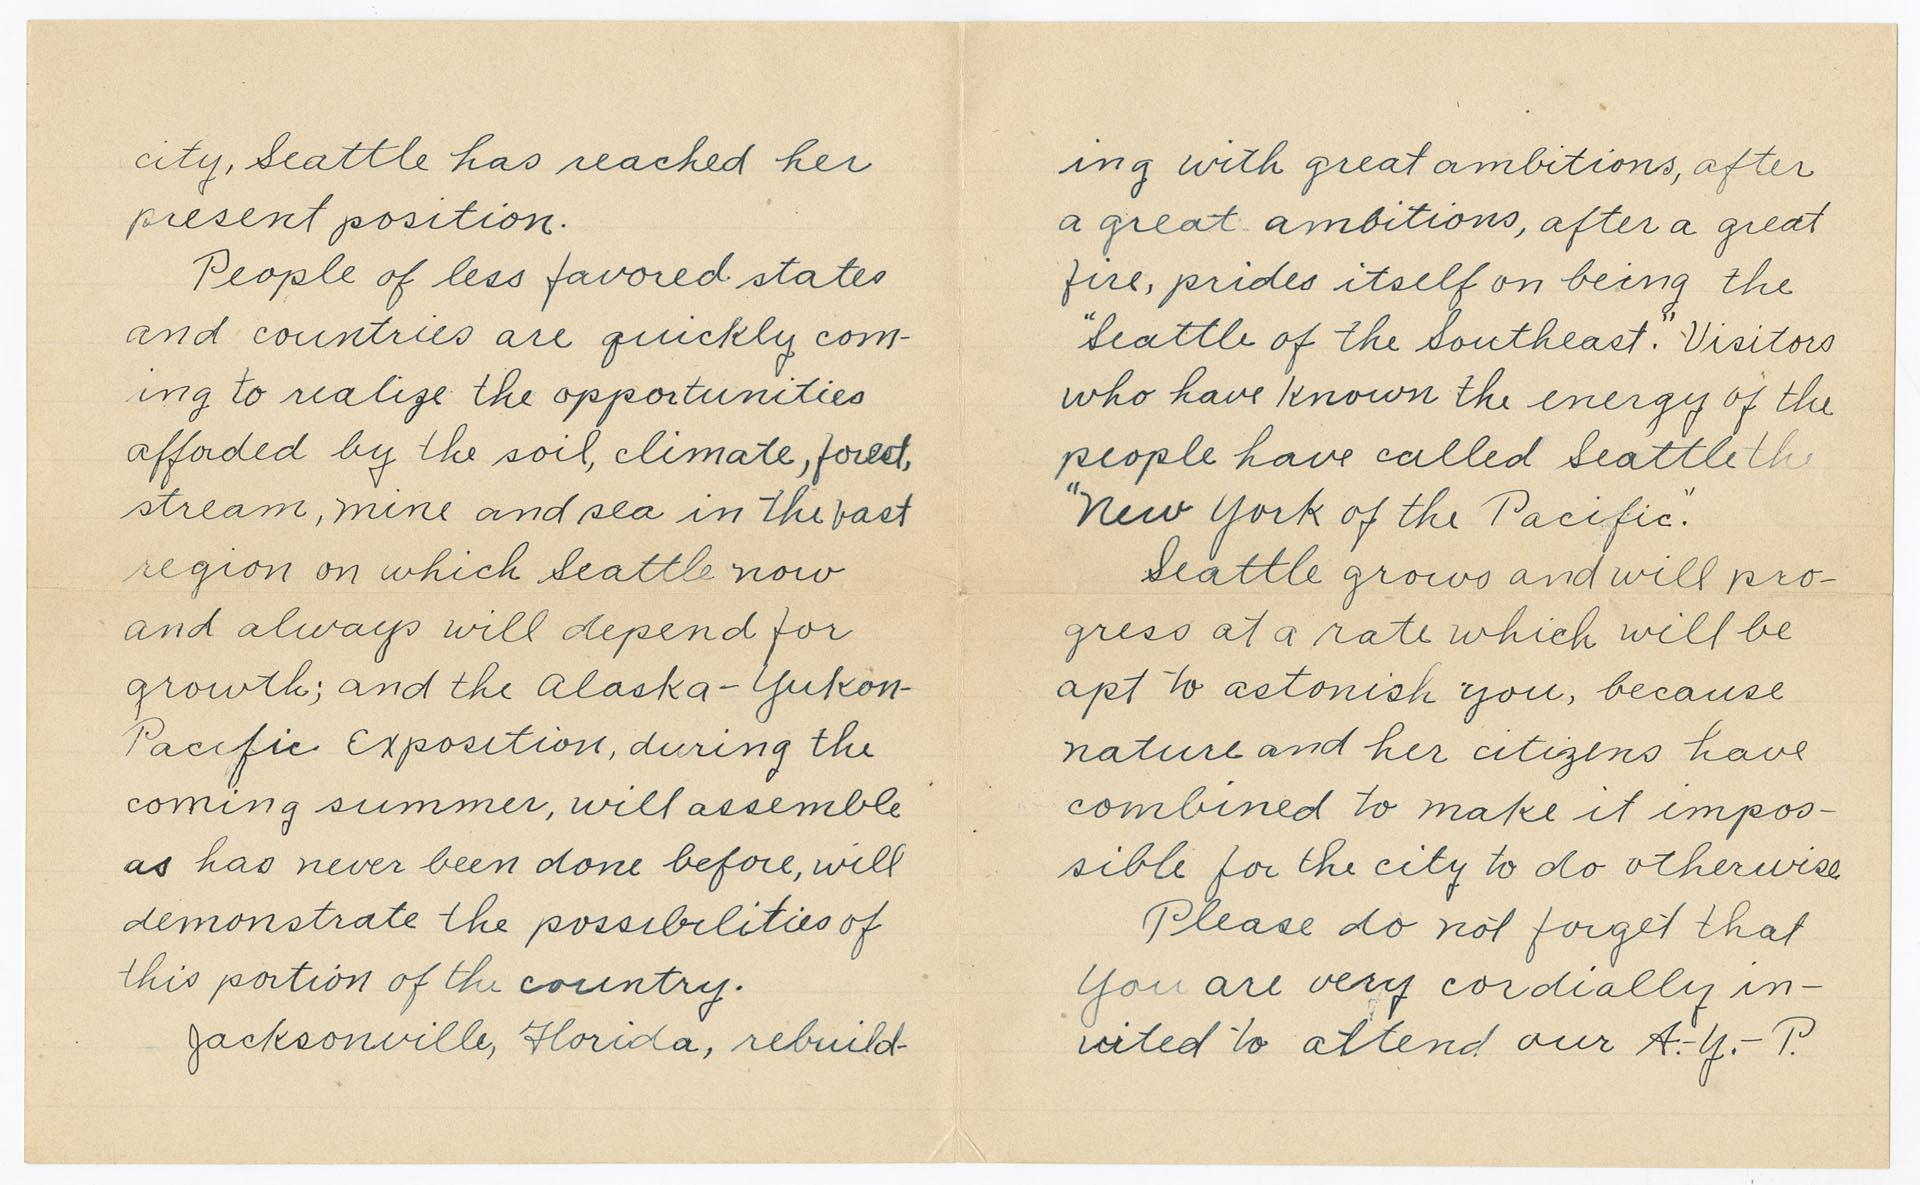 city, Seattle has reached her
present position.
People of less favored states
and countries are quickly com-
ing to realize the opportunities
afforded by the soil, climate, forest,
stream, mine and sea in the vast
region on which Seattle now
and always will depend for
growth; and the Alaska-Yukon-
Pacific Exposition, during the
coming summer, will assemble
as has never been done before, will
demonstrate the possibilities of
this portion of the country.
Jacksonville, Florida, rebuild-
ing with great ambitions, after
a great ambitions, after a great
fire, prides itself on being the
"Seattle of the Southeast." Visitors
who have known the energy of the
people have called Seattle the
"New York of the Pacific."
Seattle grows and will pro-
gress at a rate which will be
apt to astonish you, because
nature and her citizens have
combined to make it impos-
sible for the city to do otherwise.
Please do not forget that
you are very cordially in-
vited to attend our A.-Y.-P.